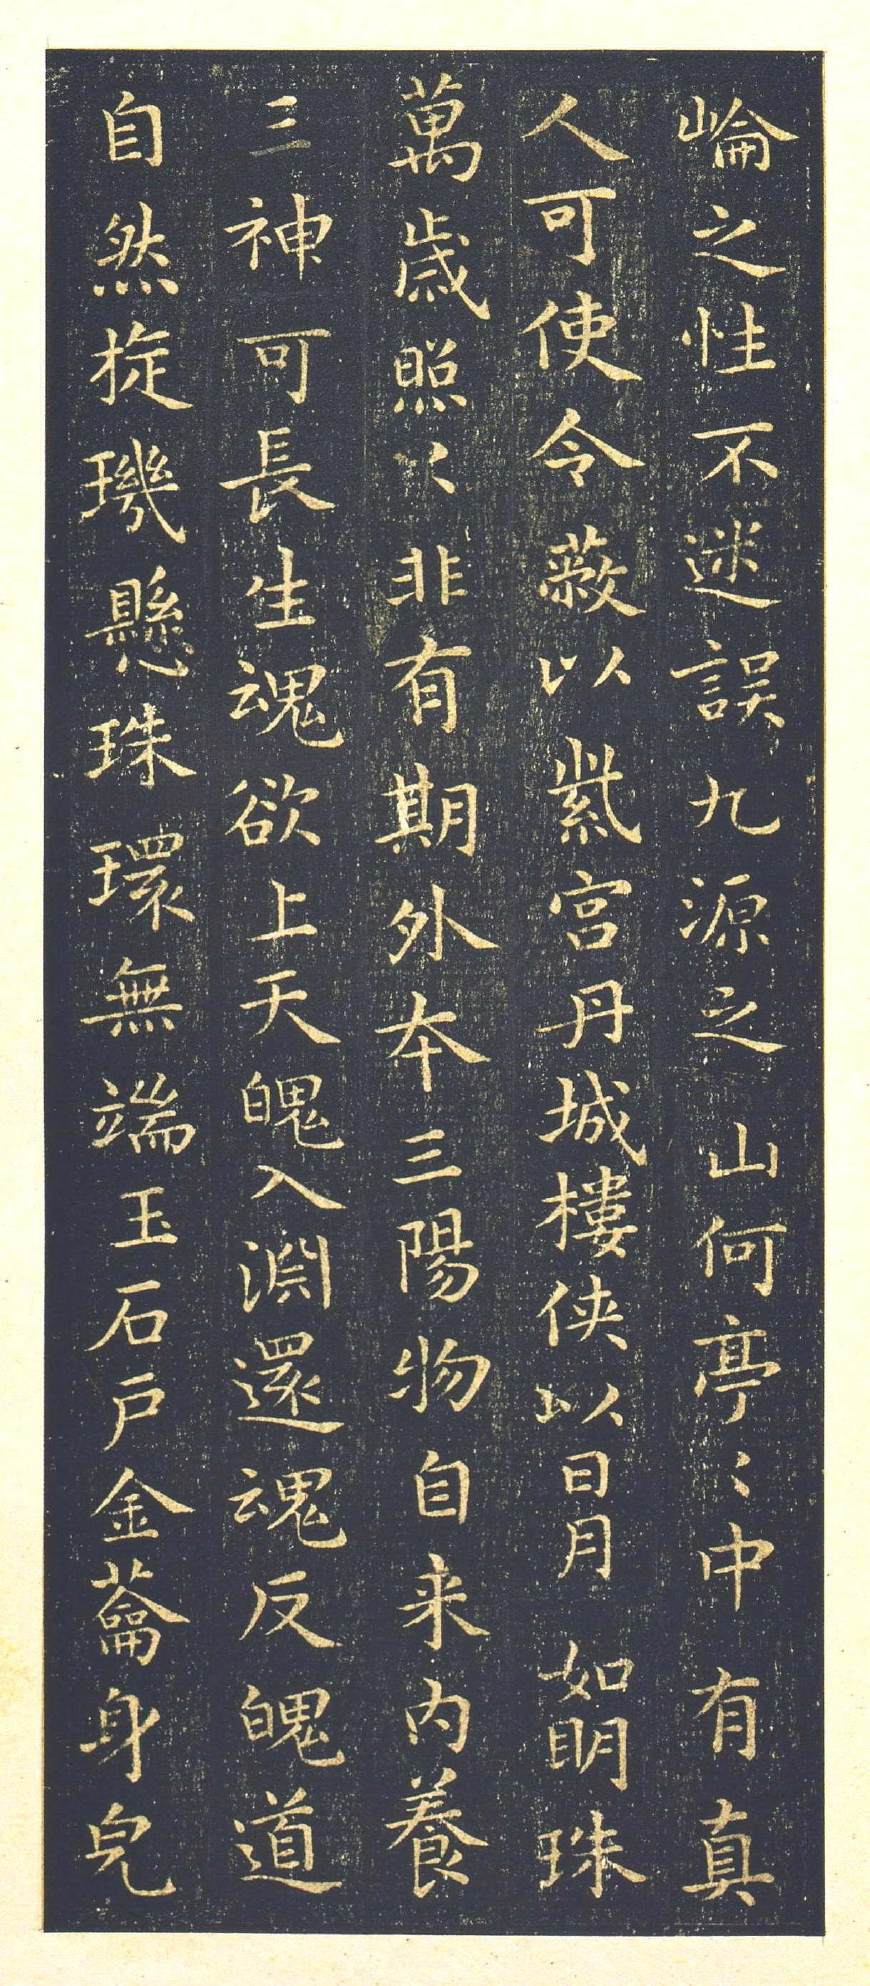 崘之性不迷誤九源之山何亭〻中有真
人可使令蔽以紫宮丹城樓俠以日月如明珠
萬歲照〻非有期外本三陽物自来内養
三神可長生魂欲上天魄入淵還魂反魄道
自然旋璣懸珠環無端玉石戶金蘥身皃